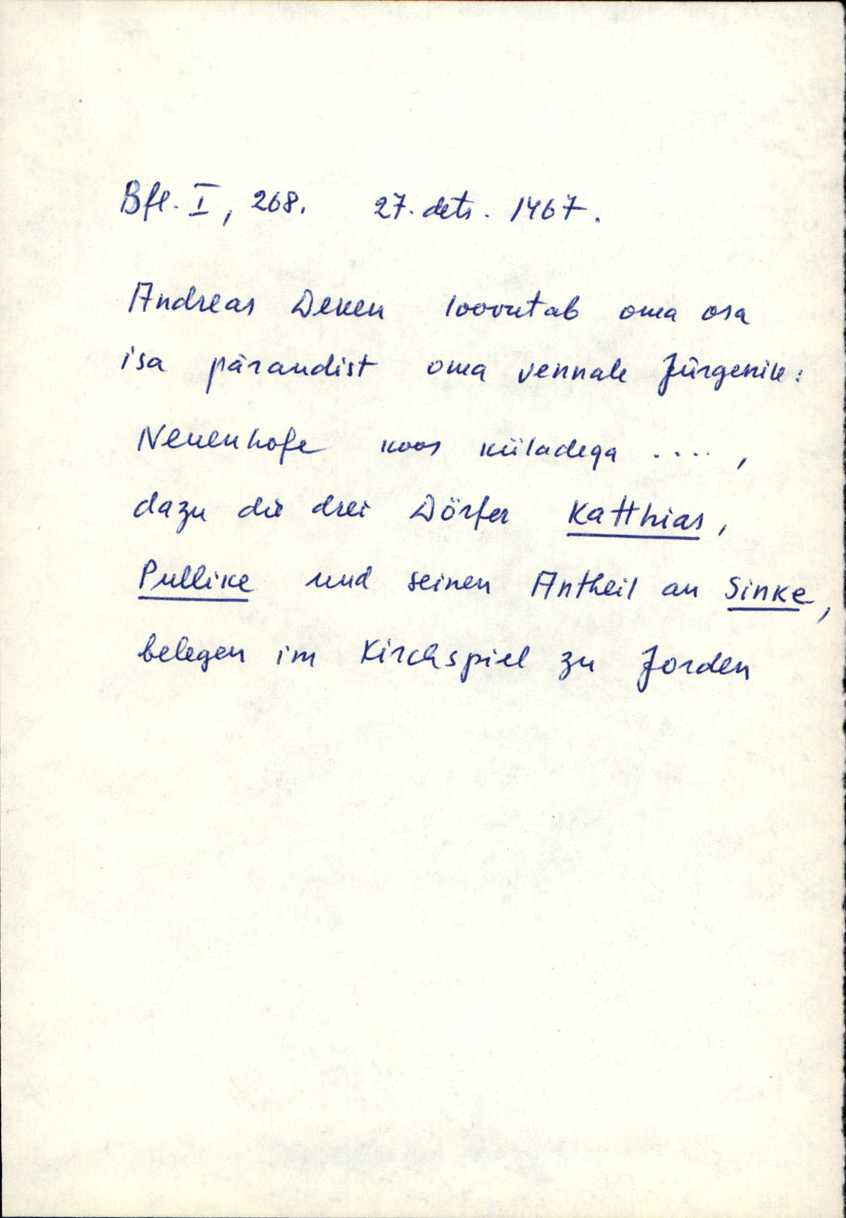 Bfl. I, 268. 27. dets. 1467.
Andreas Deken loovutab oma osa
isa pärandist oma vennale Jürgenile:
Neuenhofe koos küladega ....,
dazu die drei Dörfer Katthias,
Pullike und seinen Antheil an Sinke,
belegen im Kirchspiel zu Jorden